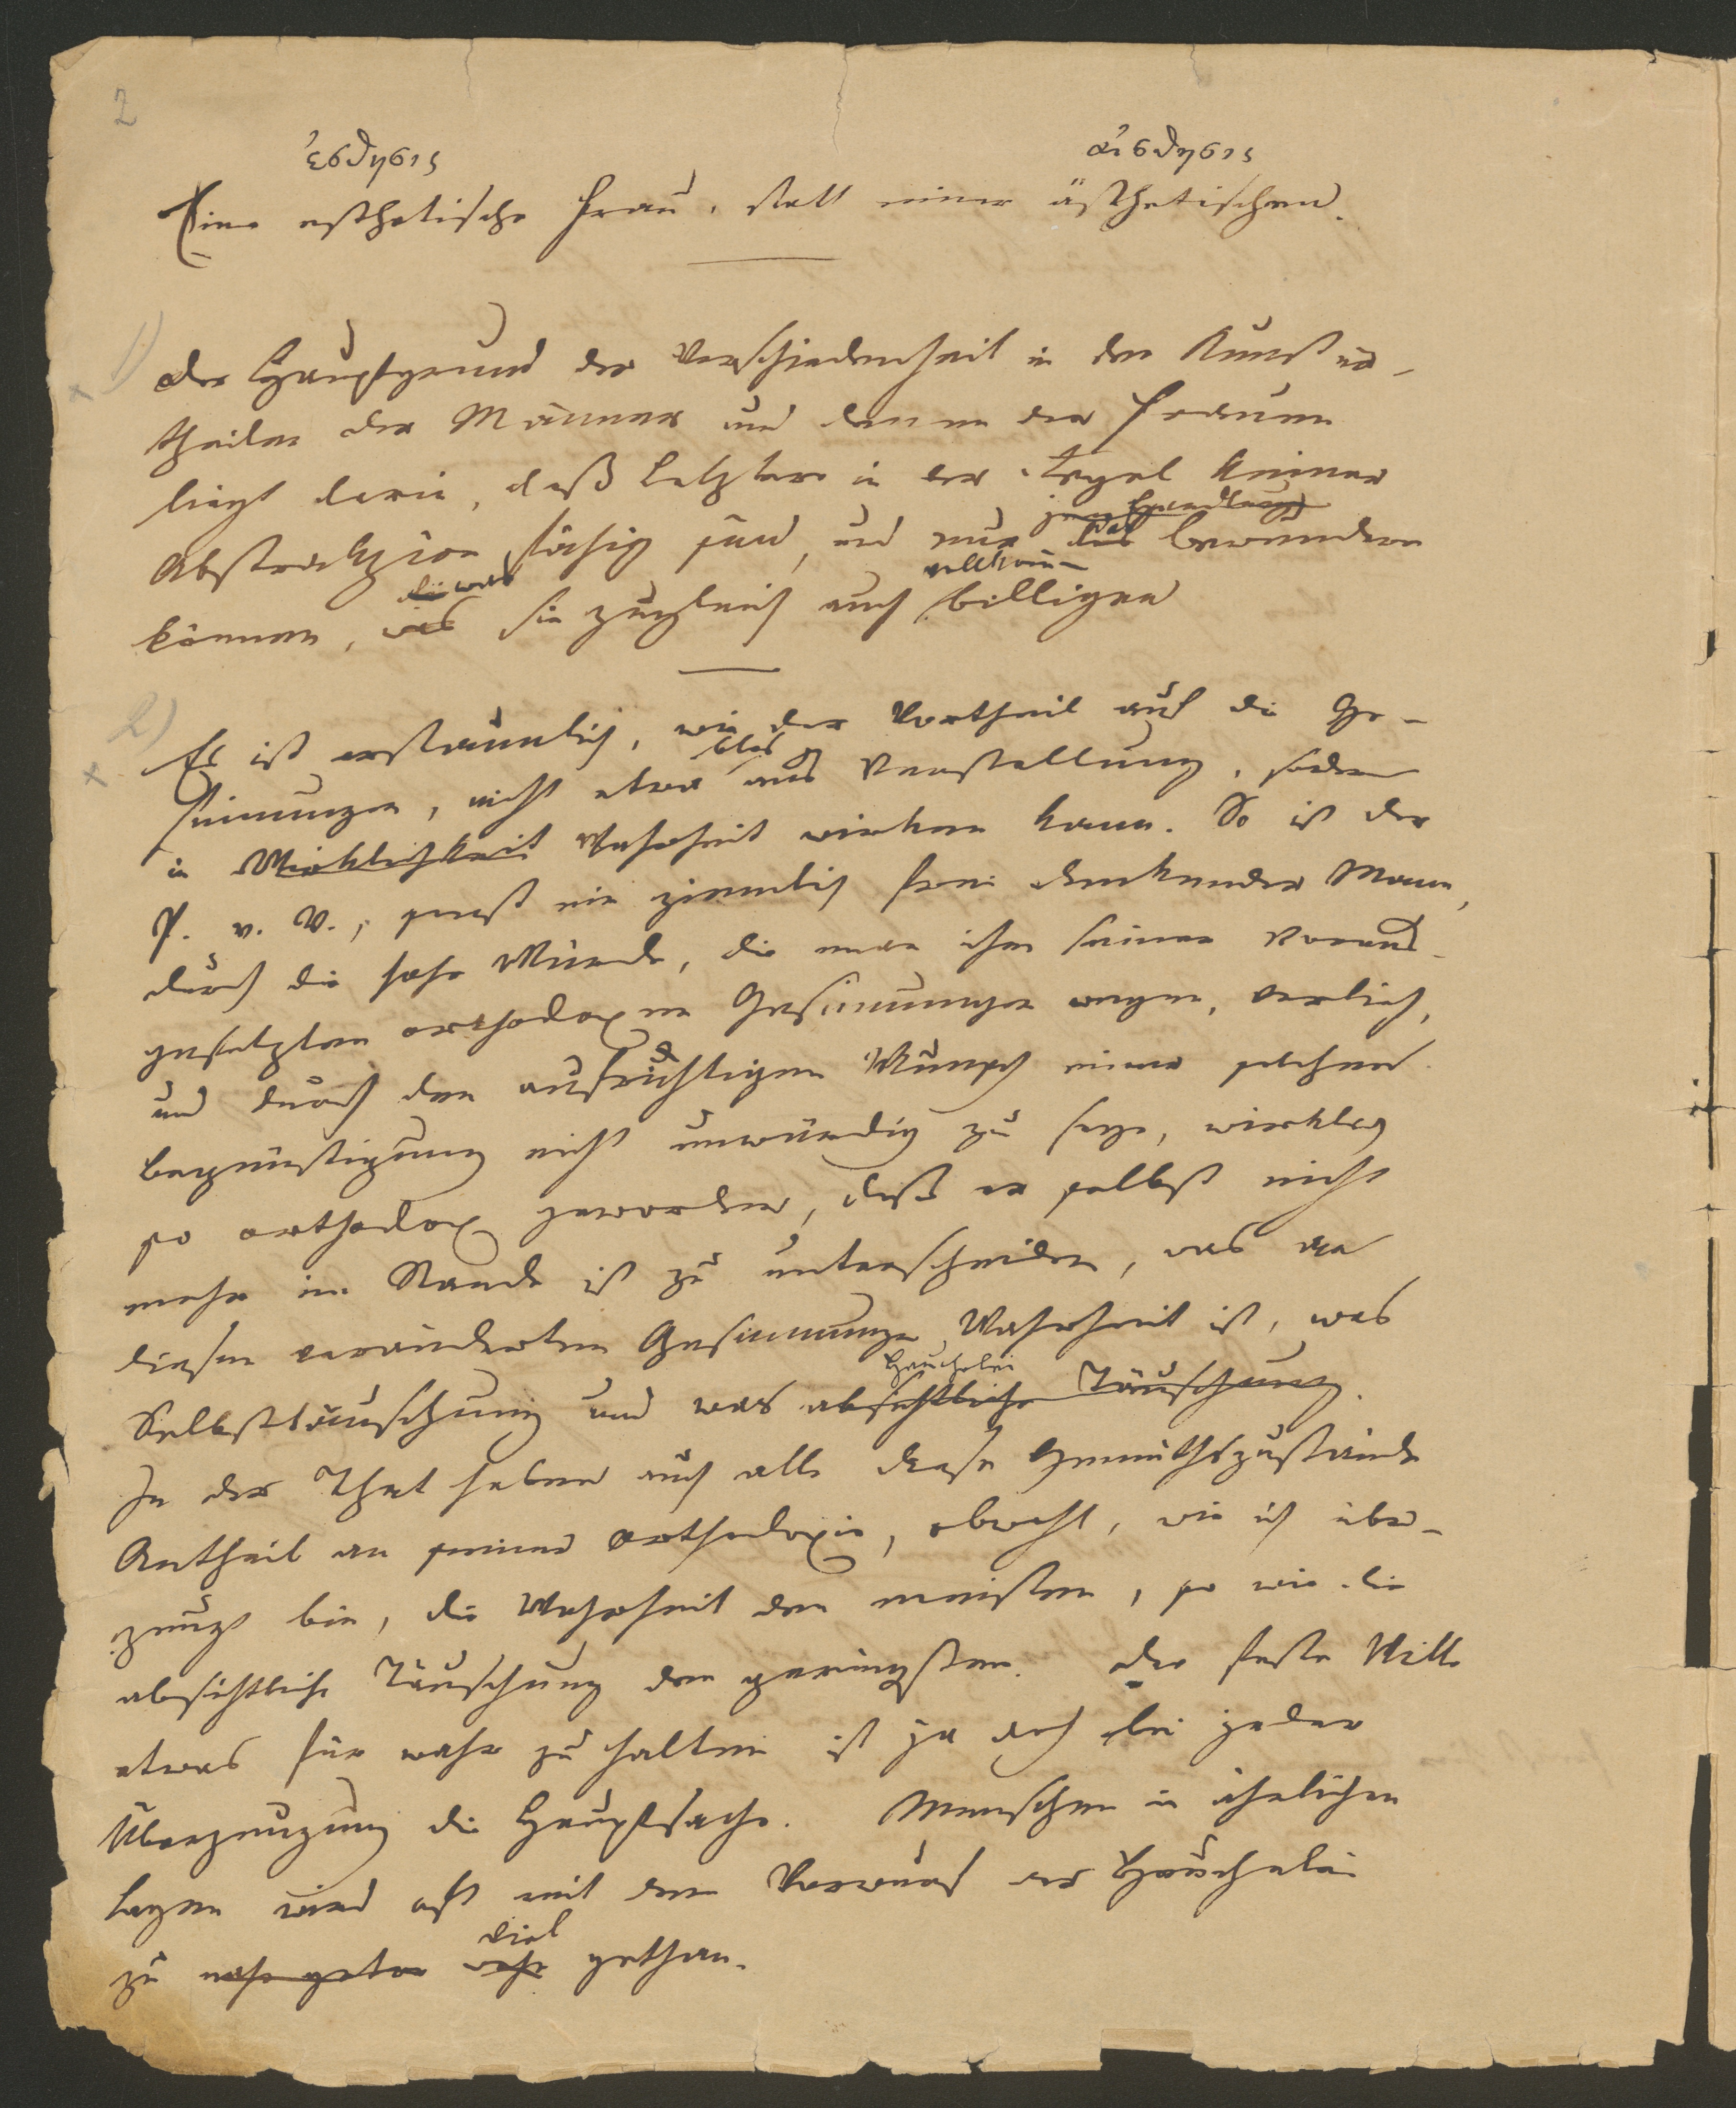 2
ἐσθησις αἰσθησις
Eine esthetische Frau, statt einer ästhetischen.
1)
x
Der Hauptgrund der Verschiedenheit in den Kunstur-
theilen der Männer und denen der Frauen
liegt darin, daß Letztere in der Regel keiner
Abstrakzion fähig sind, und nur das bewundern
können, was sie zugleich auch vollkom billigen
2)
x
Es ist erstaunlich, wie der Vortheil auf die Ge-
sinnungen, nicht etwa blos aus Verstellung, sondern
in Wirklichkeit Wahrheit wirken kann. So ist der
P. v. V., sonst ein ziemlich frei denkender Mann,
durch die hohe Würde, die man ihm seiner voraus-
gesetzten orthodoxen Gesinnungen wegen, verlieh,
und durch den aufrichtigen Wunsch einer solchen
Begünstigung nicht unwürdig zu seyn, wirklich
so orthodox geworden, daß er selbst nicht
mehr im Stande ist zu unterscheiden, was an
diesen veränderten Gesinnungen Wahrheit ist, was
Heuchelei
Selbsttäuschung und was absichtliche Täuschung.
In der That haben auch alle diese Gemüthszustände
Antheil an seiner Orthodoxie, obwohl, wie ich über-
zeugt bin, die Wahrheit den meisten, so wie die
absichtliche Täuschung den geringsten. Der feste Wille
etwas für wahr zu halten ist ja doch bei jeder
Überzeugung die Hauptsache. Menschen in ähnlichen
Lagen wird oft mit dem Vorwurf der Heuchelei
viel
zu nahe getan wehe gethan.